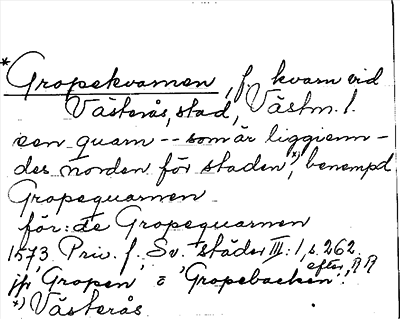 *Gropekvarnen, f. kvarn vid
Västerås, stad, Västm. l.
een quarn -- som är liggienn-
des norden för staden, x) benempd
Gropequarnen
för: de Gropequarnen
1573, Priv. f. Sv. städer III: 1, s. 262
jfr Gropen o 'Gropebacken'.
x) Västerås